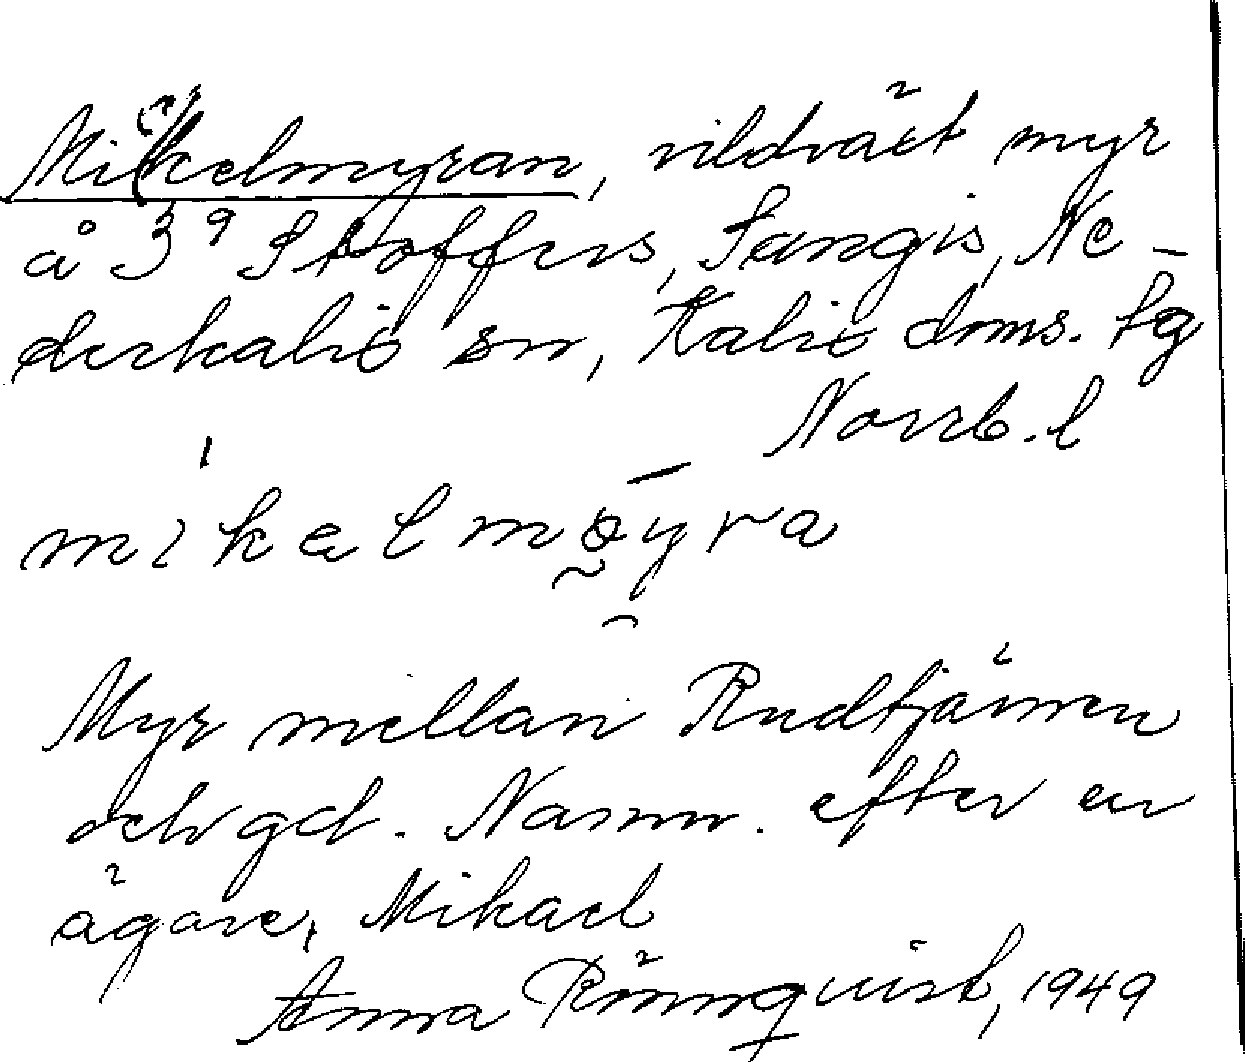 Mickelmyran, vildväxt myr
å 3⁹ Stoffers, Sangis, Ne-
derkalix sn, Kalix doms. tg
Norrb. l
mikəlmøyra
Myr mellan Rudtjärnen
och gd. Namn. efter en
ägare, Mikael
Anna Rönnquist, 1949